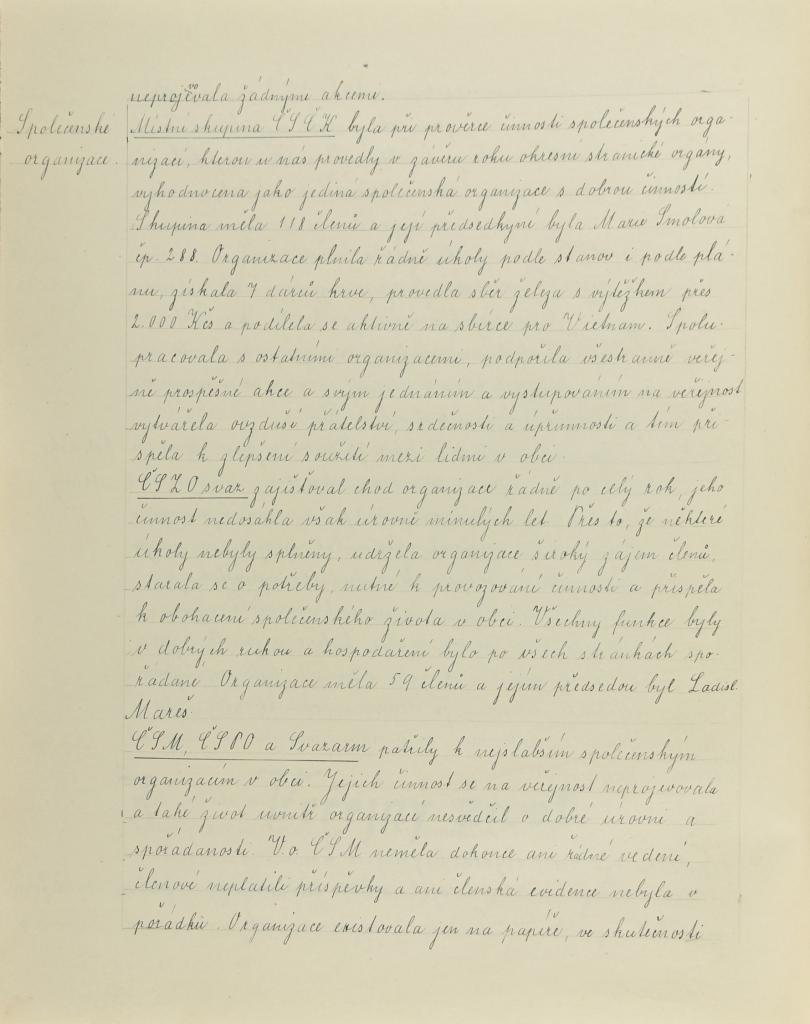 neprojevovala žádnými akcemi.
Společenské
organizace.
Místní skupina ČSČK byla při prověrce činnosti společenských orga-
nizací, kterou u nás provedly v závěru roku okresní stranické orgány,
vyhodnocena jako jediná společenská organizace s dobrou činností.
Skupina měla 118 členů a její předsedkyní byla Marie Smolová
čp. 288. Organizace plnila řádně úkoly podle stanov i podle plá-
nu, získala 7 dárců krve, provedla sběr železa s výtěžkem přes
2.000 Kčs a podílela se aktivně na sbírce pro Vietnam. Spolu-
pracovala s ostatními organizacemi, podpořila všestranně veřej-
ně prospěšné akce a svým jednáním a vystupováním na veřejnost
vytvářela ovzduší přátelství, srdečnosti a upřímnosti a tím při-
spěla k zlepšení soužití mezi lidmi v obci.
ČSŽ O svaz zajišťoval chod organizace řádně po celý rok, jeho
činnost nedosáhla však úrovně minulých let. Přes to, že některé
úkoly nebyly splněny, udržela organizace široký zájem členů,
starala se o potřeby, nutné k provozování činnosti a přispěla
k obohacení společenského života v obci. Všechny funkce byly
v dobrých rukou a hospodaření bylo po všech stránkách spo-
řádané. Organizace měla 59 členů a jejím předsedou byl Ladisl.
Mareš.
ČSM, ČSPO a Svazarm patřily k nejslabším společenským
organizacím v obci. Jejich činnost se na veřejnost neprojevovala
a také život uvnitř organizací nesvědčil o dobré úrovni a
spořádanosti. V.o. ČSM neměla dokonce ani řádné vedení,
členové neplatili příspěvky a ani členská evidence nebyla v
pořádku. Organizace existovala jen na papíře, ve skutečnosti